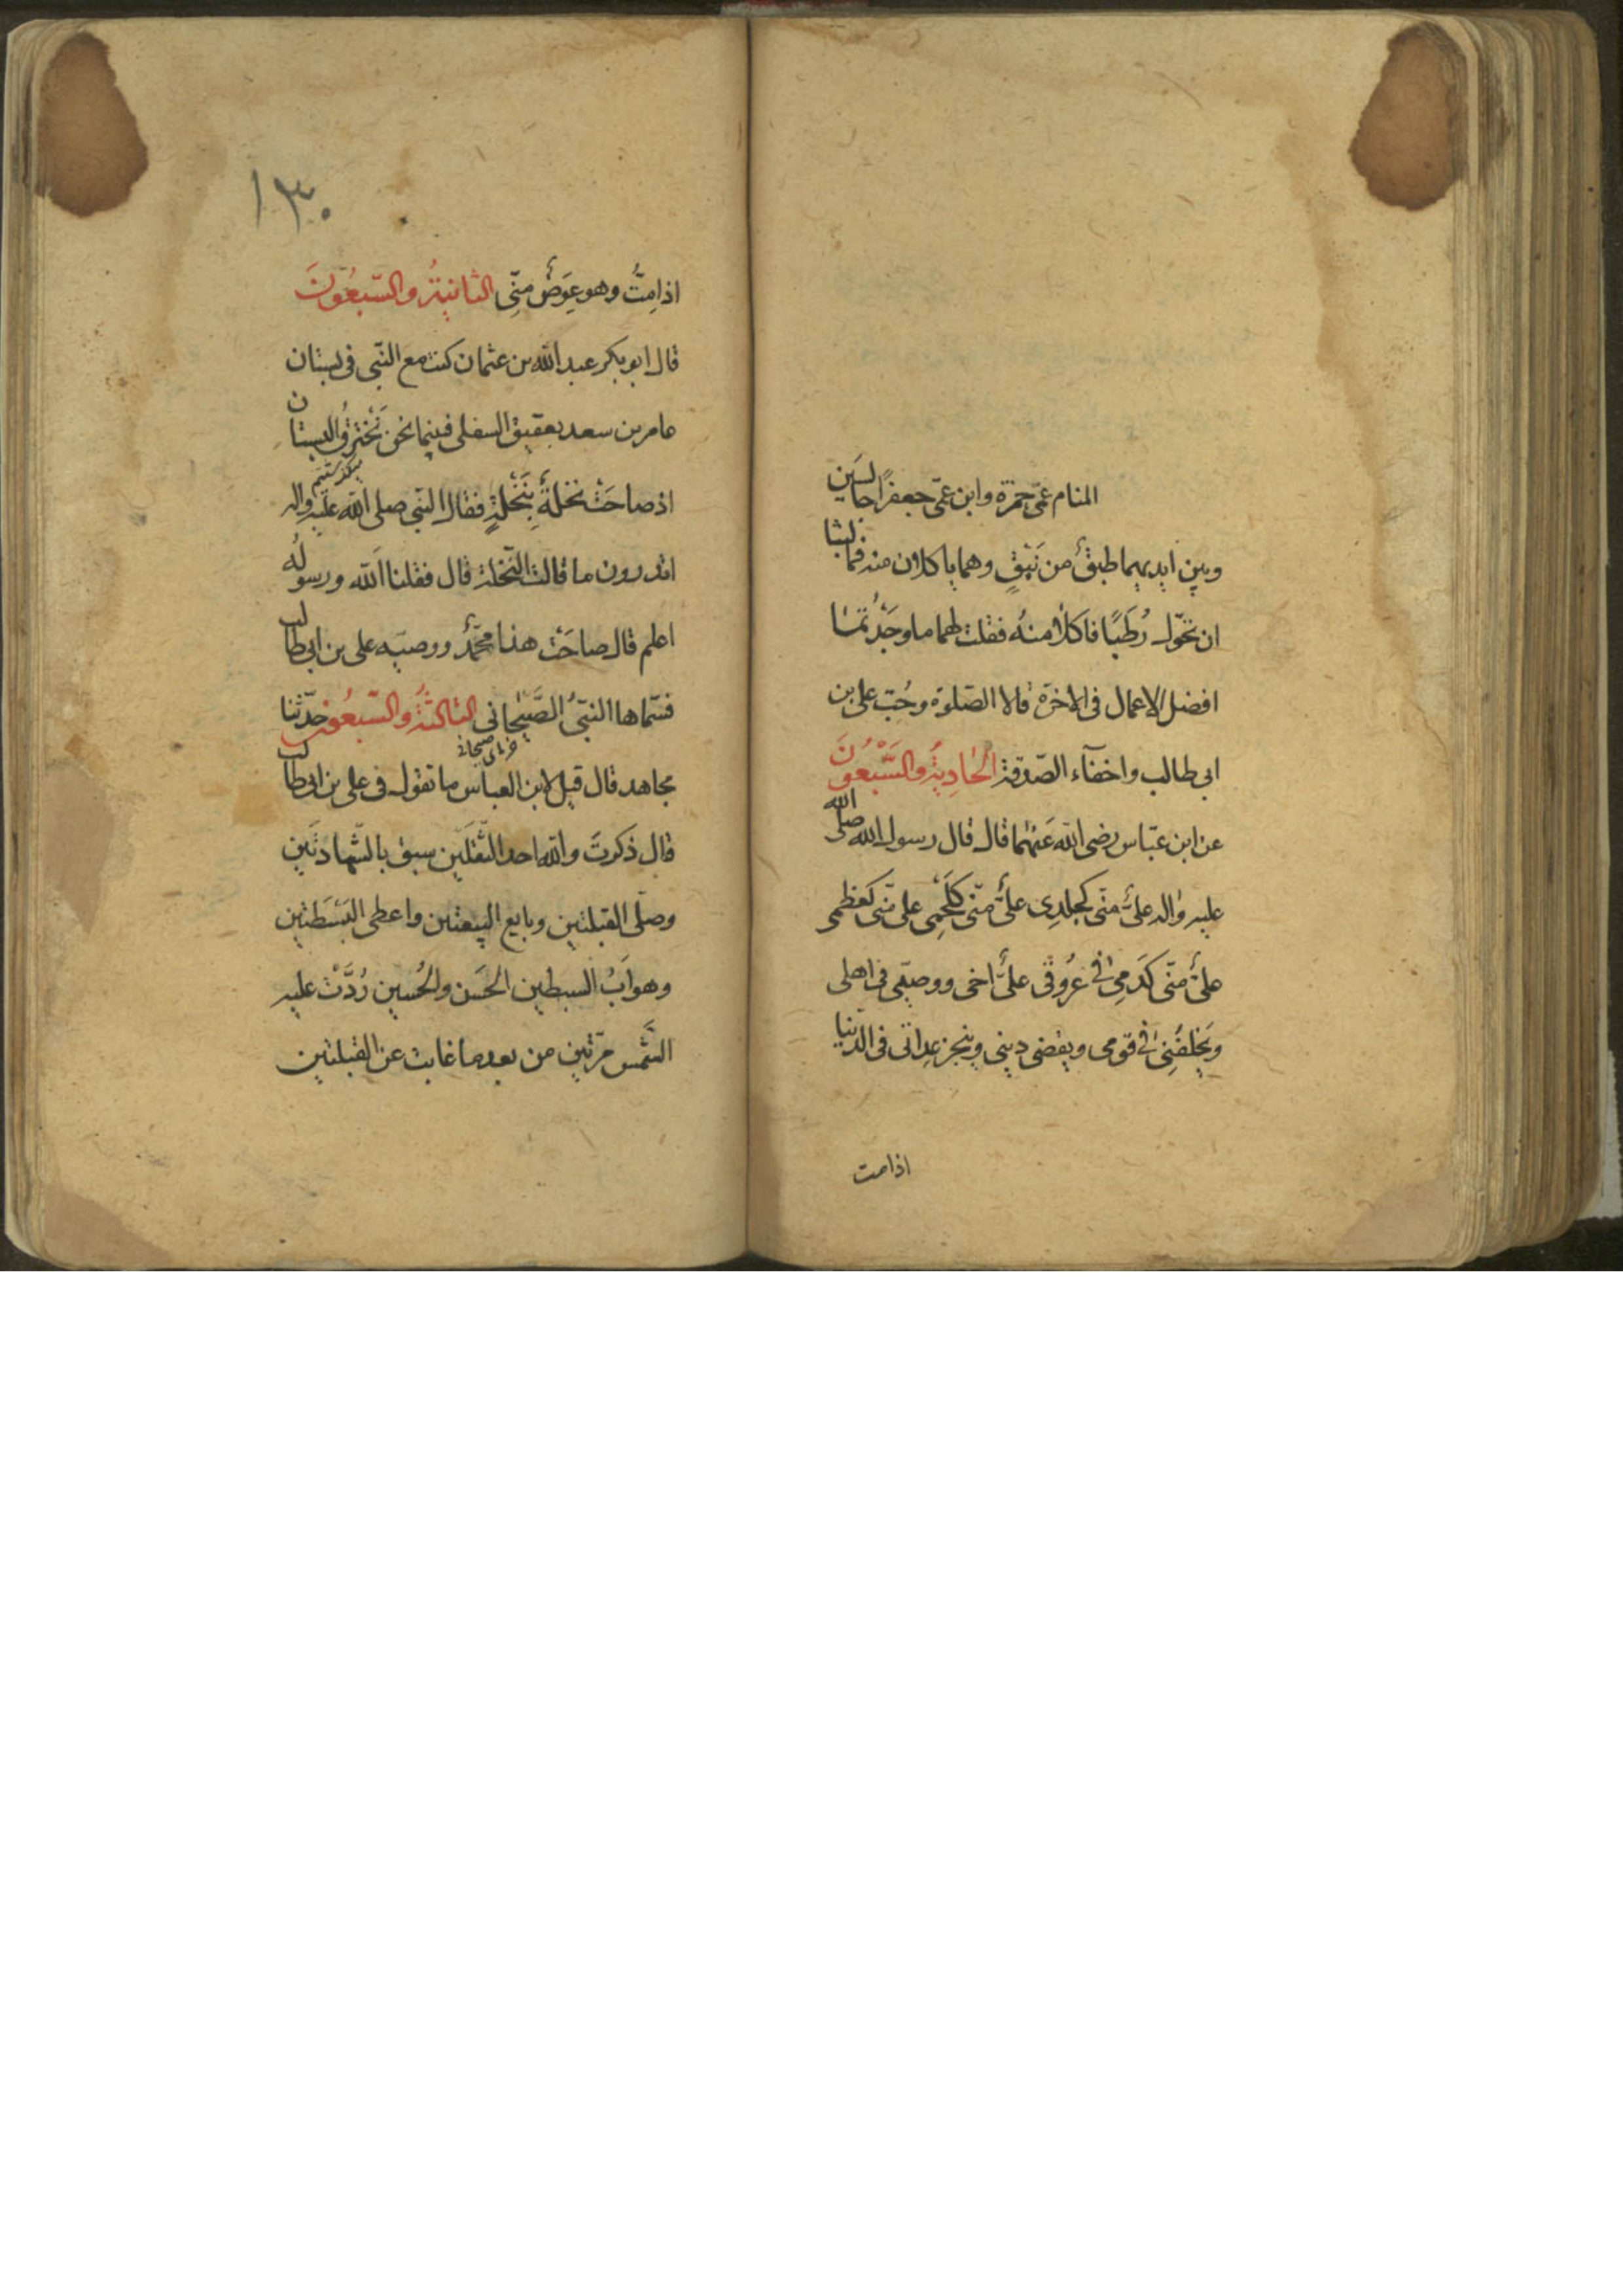 المنام عمّی حمزة وابن عمّی جعفرًا جالسَین
وبین ایدیهما طبقٌ من نَبْقٍ وهما یاکلان منه فما لبثا
ان تحوّل رُطَبًا فاکلا منهُ فقلت لهما ما وجَدْتُما
افضل الاعمال فی الاخرة قالا الصّلوة وحُبّ علی بن
ابی طالب واخفآء الصّدقة الحَادِیَةُ والسَّبْعُونَ
عن ابن عبّاس رضی الله عَنهُما قال قال رسول الله صلی الله
علیه واله علیٌّ منّی کجلدِی علیٌّ منّی کلَحْمِی علی منّی کعَظمی
علیٌّ منّی کدَمِی فی عُرُوقی علیٌّ اخی ووصیّی فی اهلی
ویَخلفُنِی فی قومی ویقضی دینی وینجز عِداتی فی الدّنیا
اذا مت
١٣٠
اذا مِتُّ وهو عِوَضٌ منِّی الثانیَةُ والسّبعُونَ
قال ابو بکر عبد الله بن عثمان کنت مع النّبی فی بستان
عامر بن سعد بعقیق السفلی فبینما نحن نَخْترِقُ البستان
میگذشتیم
اذ صاحَتْ نخلةٌ بِنَخْلَةٍ فقال النّبی صلی الله علیه واله
اتدرون ما قالت النّخلة قال فقلنا الله ورسولُه
اعلم قال صاحَتْ هذا محمّدٌ ووصیّه علی بن ابی طالب
فسمّاها النبیُّ الصَّیْحانی الثالثةُ والسّبعُون حدّثنا
مجاهد قال قیل لابن العباس ما تقول فی علی بن ابی طالب
قال ذکرتَ والله احد الثّقلَین سبق بالشّهادتَین
وصلّی القبلتین وبایع البیعتین واعطی البَسْطَتین
وهو اَبُ السبطین الحَسَن والحُسین رُدَّتْ علیه
الشَّمس مرّتین من بعد ما غابت عن القبلتین